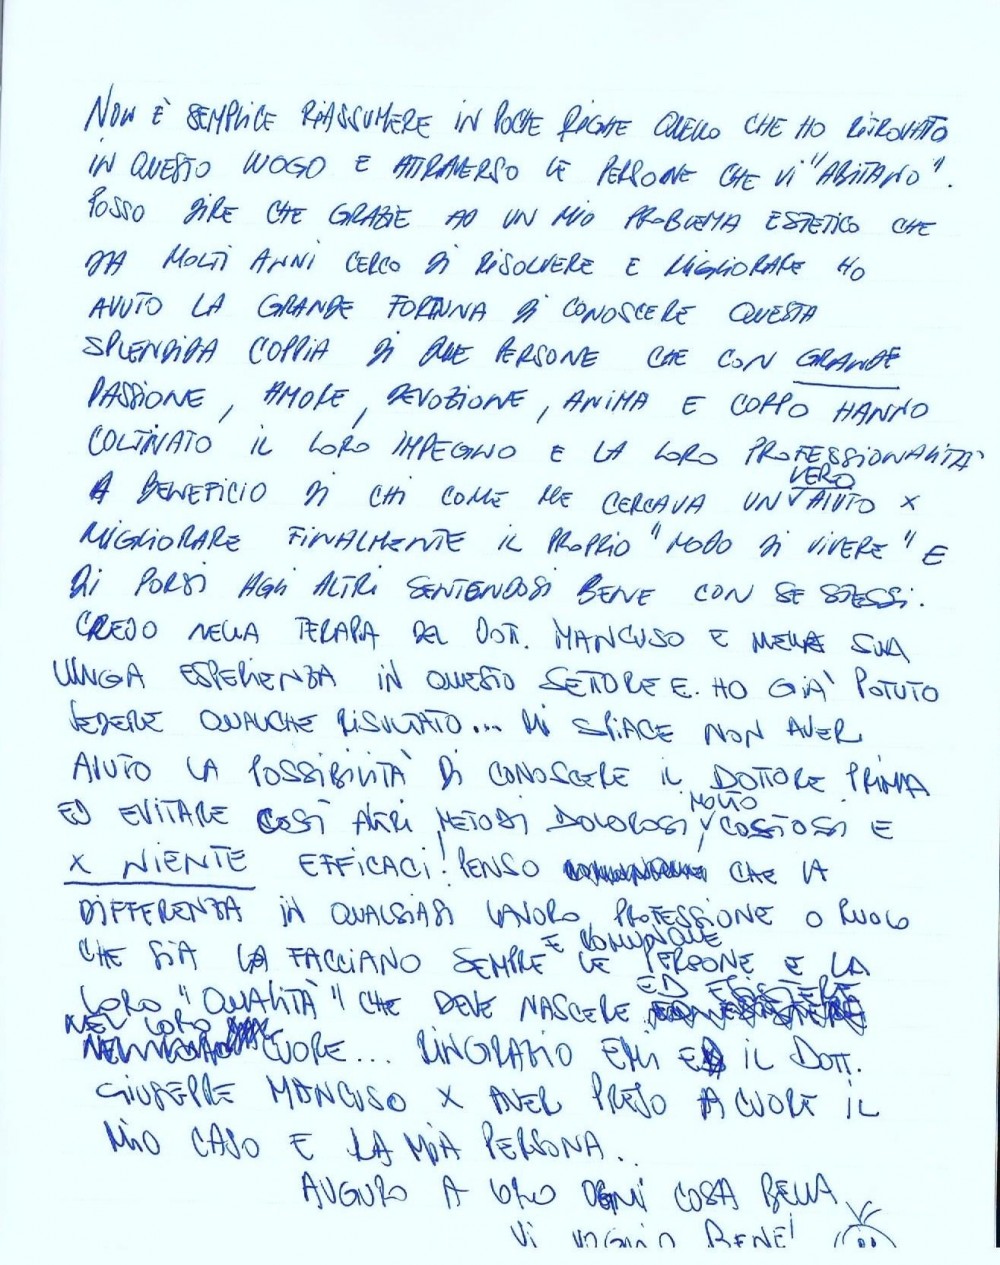 NON È SEMPLICE RIASSUMERE IN POCHE RIGHE QUELLO CHE HO RITROVATO
IN QUESTO LUOGO E ATTRAVERSO LE PERSONE CHE VI "ABITANO".
POSSO DIRE CHE GRAZIE AD UN MIO PROBLEMA ESTETICO CHE
DA MOLTI ANNI CERCO DI RISOLVERE E MIGLIORARE HO
AVUTO LA GRANDE FORTUNA DI CONOSCERE QUESTA
SPLENDIDA COPPIA DI DUE PERSONE CHE CON GRANDE
PASSIONE, AMORE, DEVOZIONE, ANIMA E CORPO HANNO
COLTIVATO IL LORO IMPEGNO E LA LORO PROFESSIONALITÀ
A BENEFICIO DI CHI COME ME CERCAVA UN VERO AIUTO X
MIGLIORARE FINALMENTE IL PROPRIO "MODO DI VIVERE" E
DI PORSI AGLI ALTRI SENTENDOSI BENE CON SE STESSI.
CREDO NELLA TERAPIA DEL DOTT. MANCUSO E NELLA SUA
LUNGA ESPERIENZA IN QUESTO SETTORE E. HO GIÀ POTUTO
VEDERE QUALCHE RISULTATO... MI SPIACE NON AVER
AVUTO LA POSSIBILITÀ DI CONOSCERE IL DOTTORE PRIMA
ED EVITARE COSÌ ALTRI METODI DOLOROSI, MOLTO COSTOSI E
X NIENTE EFFICACI! PENSO CHE LA
DIFFERENZA IN QUALSIASI LAVORO, PROFESSIONE O RUOLO
CHE SIA LA FACCIANO SEMPRE E COMUNQUE LE PERSONE E LA
LORO "QUALITÀ" CHE DEVE NASCERE ED ESISTERE
NEL LORO CUORE... RINGRAZIO EMI E IL DOTT.
GIUSEPPE MANCUSO X AVER PRESO A CUORE IL
MIO CASO E LA MIA PERSONA.
AUGURO A LORO OGNI COSA BELLA
VI VOGLIO BENE!